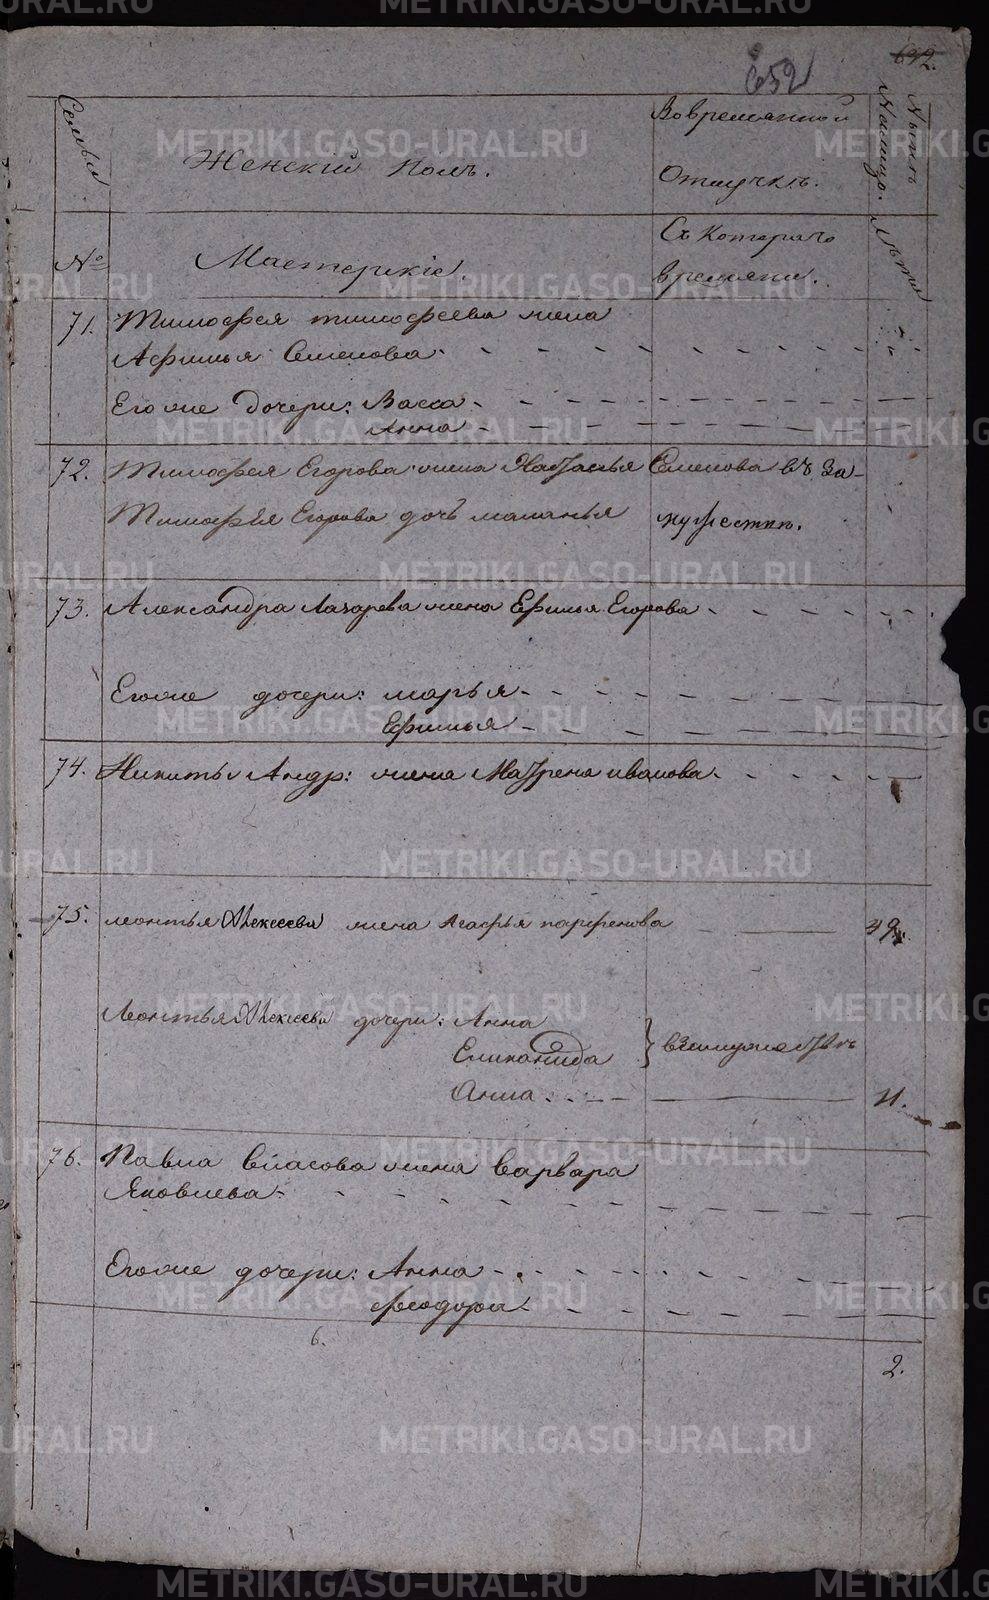 652
692.
Семьи
Женский Полъ.
Во временной
Отлучкѣ.
Нынѣ
Налицо.
№
Мастерскіе.
Съ Котораго
времяни.
Лѣта
71. Тимофея тимофеева жена
Афимья Семенова
Его же дочери: Васса
Анна
72. Тимофея Егорова жена Настасья Семенова въ За-
Тимофѣя Егорова дочь маланья
мужествѣ.
73. Александра Лазарева жена Ефимья Егорова
Егоже дочери: марья
Ефимья
74. Никиты Андр: жена Матрена иванова
75. леонтья Алексеева жена Агафья парфенова 49.
Леонтья Алексеева дочери: Анна
Епиканида } взамужествѣ
Анна 11.
76. Павла Власова жена варвара
Яковлева
Егоже дочери: Анна
феодора
6.
2.
METRIKI.GASO-URAL.RU